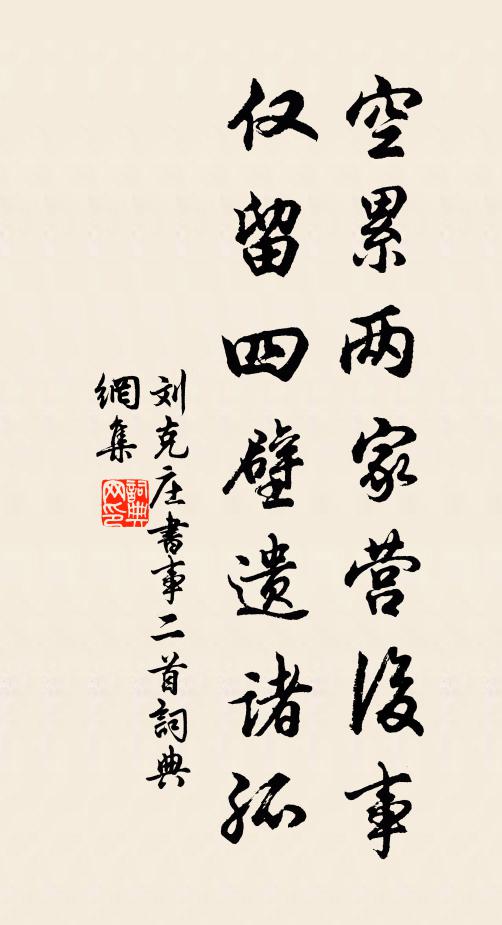 空累两家营後事
仅留四壁遗诸孤
刘克庄书事二首詞典
網集
詞典
网印